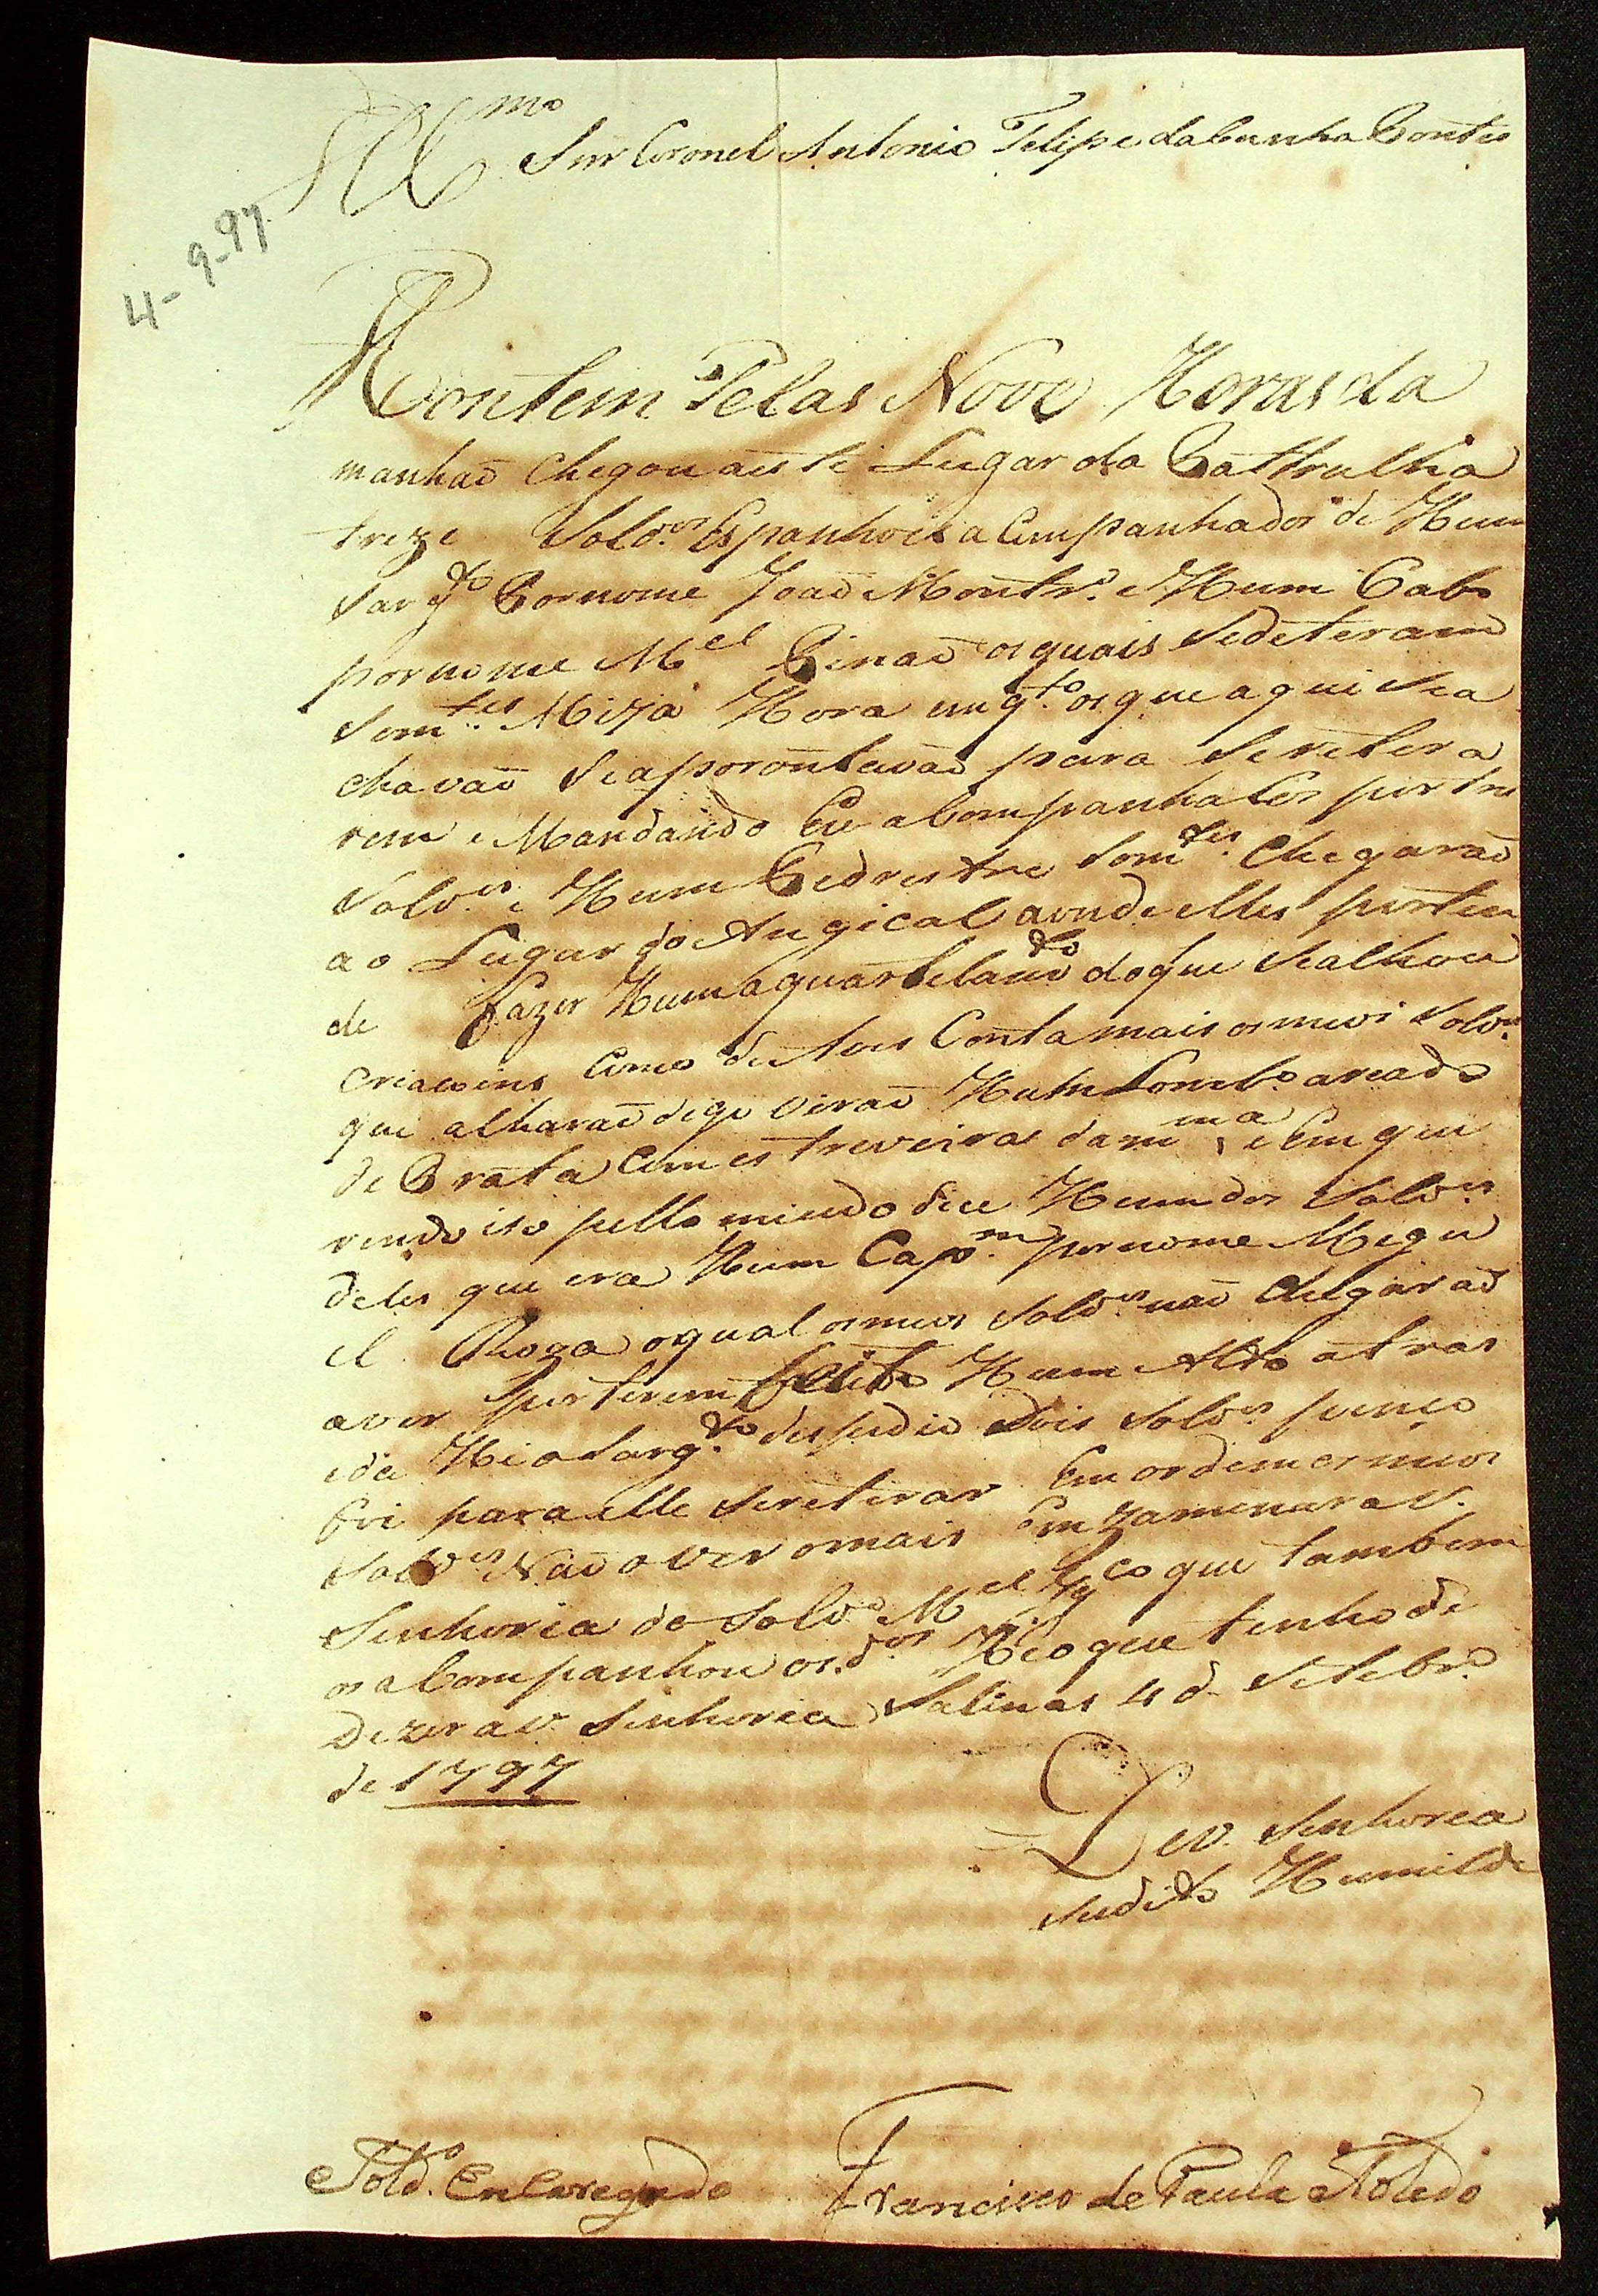 Illmo
Snr Coronel Antonio Felipe da Cunha Pontes
4-9-97
Hontem Pelas Nove Horas da
manhaã chegou aeste Lugar da Pattrulha
treze Soldos Espanhoes a Companhados de Hum
Sargto Por nome Joaõ Montro e Hum Cabo
por nome Mel os quais Sedeteraõ
Somtes Meya Hora emqto os que aqui Sea
chavaõ Seaporontavaõ para Sereter a
rem e Mandando Eu aCompanhalos por tres
Soldos e Hum Pedrestre Somtes Chegaraõ
ao Lugar do Angical aonde elles perten
de fazer Hum aquartelamto do que Sealhou
como de tres Conta mais os meus Soldos
que alharaõ de que viraõ Hum Lombo areado
de Prata Com estreveiras da mma e Em que
rendo iso pello miudo dice Hum dos Soldos
deles que era Hum Capm por nome Migu
el Roza o qual os meus Soldos naõ Chegaraõ
aver por terem feito Hum Alto atras
e da Hi o Sargto despedio dois Soldos
foi para elle Seretirar Em ordem os meus
Soldos Naõ o ver o mais Emzamenara V.
Senhoria do Soldo Mel que tambem
os aCompanhou os dos He o que tenho de
Dezer a V. Senhoria Salinas 4 de Setebro
de 1797
De V. Senhoria
Sudito Humilde
Soldo Encaregado Francisco de Paula Toledo